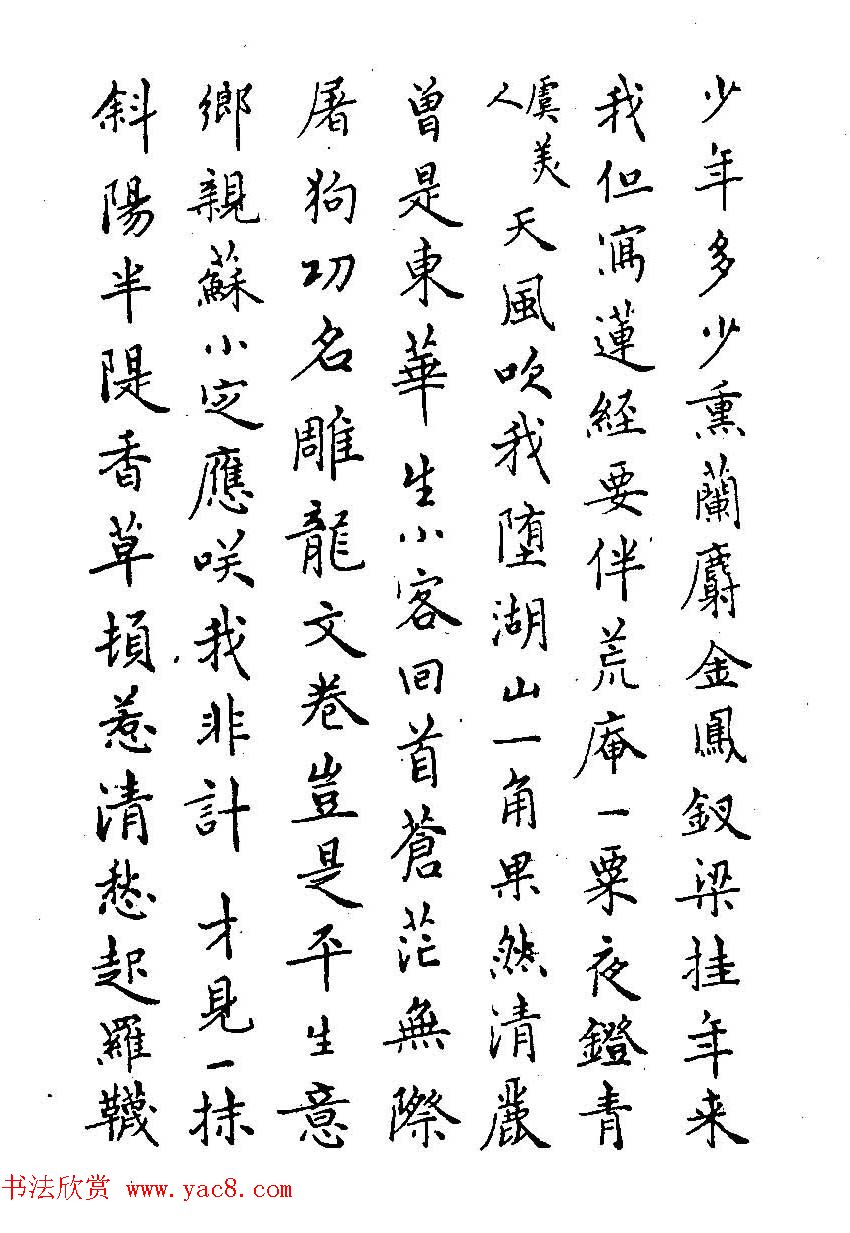 少年多少熏蘭麝金鳳釵梁挂年来
我但寫蓮經要伴荒庵一粟夜鐙青
虞美人
天風吹我堕湖山一角果然清麗
曾是東華生小客回首蒼茫無際
屠狗功名雕龍文卷豈是平生意
鄉親蘇小定應咲我非計 才見一抹
斜陽半隄香草頓惹清愁起羅韈
书法欣赏 www.yac8.com